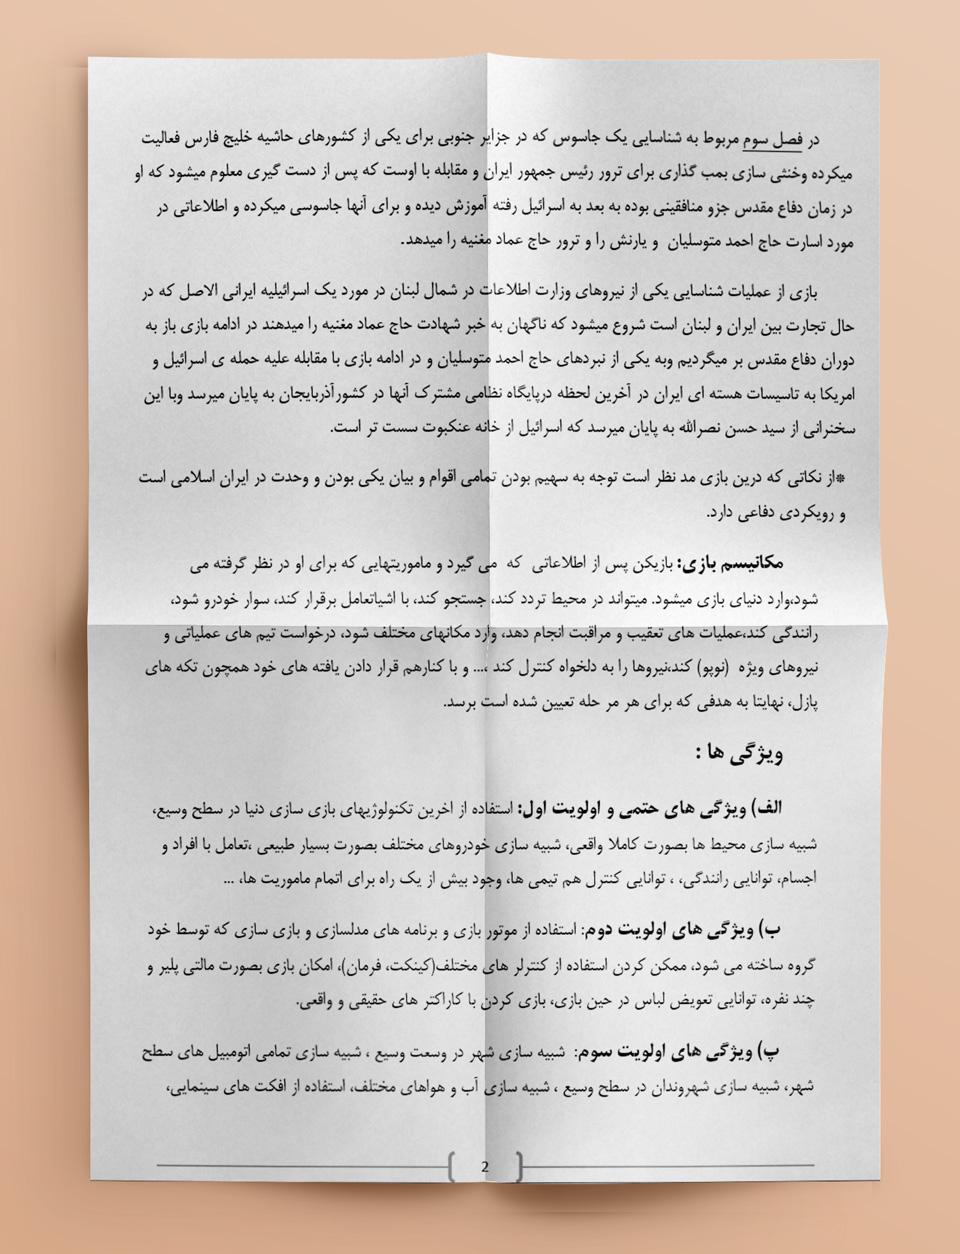 در فصل سوم مربوط به شناسایی یک جاسوس که در جزایر جنوبی برای یکی از کشورهای حاشیه خلیج فارس فعالیت
میکرده وخنثی سازی بمب گذاری برای ترور رئیس جمهور ایران و مقابله با اوست که پس از دست گیری معلوم میشود که او
در زمان دفاع مقدس جزو منافقینی بوده به بعد به اسرائیل رفته آموزش دیده و برای آنها جاسوسی میکرده و اطلاعاتی در
مورد اسارت حاج احمد متوسلیان و یارنش را و ترور حاج عماد مغنیه را میدهد.
بازی از عملیات شناسایی یکی از نیروهای وزارت اطلاعات در شمال لبنان در مورد یک اسرائیلیه ایرانی الاصل که در
حال تجارت بین ایران و لبنان است شروع میشود که ناگهان به خبر شهادت حاج عماد مغنیه را میدهند در ادامه بازی باز به
دوران دفاع مقدس بر میگردیم وبه یکی از نبردهای حاج احمد متوسلیان و در ادامه بازی با مقابله علیه حمله ی اسرائیل و
امریکا به تاسیسات هسته ای ایران در آخرین لحظه درپایگاه نظامی مشترک آنها در کشورآذربایجان به پایان میرسد وبا این
سخنرانی از سید حسن نصرالله به پایان میرسد که اسرائیل از خانه عنکبوت سست تر است.
*از نکاتی که درین بازی مد نظر است توجه به سهیم بودن تمامی اقوام و بیان یکی بودن و وحدت در ایران اسلامی است
و رویکردی دفاعی دارد.
مکانیسم بازی: بازیکن پس از اطلاعاتی که می گیرد و ماموریتهایی که برای او در نظر گرفته می
شود،وارد دنیای بازی میشود. میتواند در محیط تردد کند، جستجو کند، با اشیاتعامل برقرار کند، سوار خودرو شود،
رانندگی کند،عملیات های تعقیب و مراقبت انجام دهد، وارد مکانهای مختلف شود، درخواست تیم های عملیاتی و
نیروهای ویژه (نوپو) کند،نیروها را به دلخواه کنترل کند ،... و با کنارهم قرار دادن یافته های خود همچون تکه های
پازل، نهایتا به هدفی که برای هر مر حله تعیین شده است برسد.
ویژگی ها :
الف) ویژگی های حتمی و اولویت اول: استفاده از اخرین تکنولوژیهای بازی سازی دنیا در سطح وسیع،
شبیه سازی محیط ها بصورت کاملا واقعی، شبیه سازی خودروهای مختلف بصورت بسیار طبیعی ،تعامل با افراد و
اجسام، توانایی رانندگی، ، توانایی کنترل هم تیمی ها، وجود بیش از یک راه برای اتمام ماموریت ها، ...
ب) ویژگی های اولویت دوم: استفاده از موتور بازی و برنامه های مدلسازی و بازی سازی که توسط خود
گروه ساخته می شود، ممکن کردن استفاده از کنترلر های مختلف(کینکت، فرمان)، امکان بازی بصورت مالتی پلیر و
چند نفره، توانایی تعویض لباس در حین بازی، بازی کردن با کاراکتر های حقیقی و واقعی.
پ) ویژگی های اولویت سوم: شبیه سازی شهر در وسعت وسیع ، شبیه سازی تمامی اتومبیل های سطح
شهر، شبیه سازی شهروندان در سطح وسیع ، شبیه سازی آب و هواهای مختلف، استفاده از افکت های سینمایی،
2